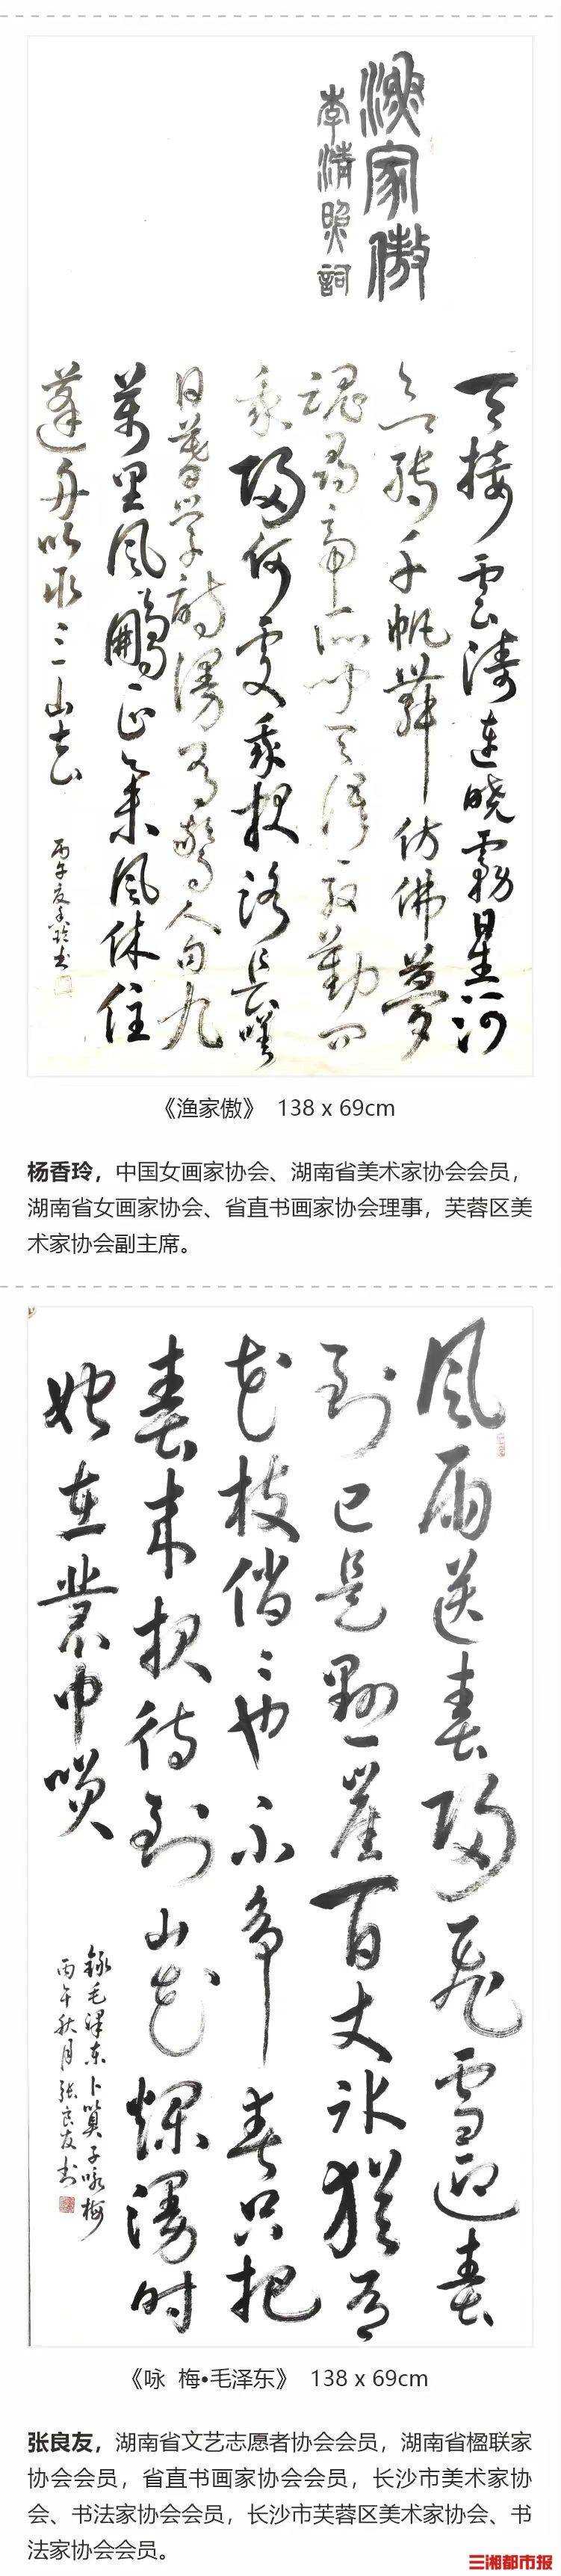 漁家傲
李清照詞
天接雲濤連曉霧星河
欲轉千帆舞仿佛夢
魂歸帝所聞天語殷勤問
我歸何處我報路長嗟
日暮學詩謾有驚人句九
萬里風鵬正舉風休住
蓬舟吹取三山去
丙午夏香玲书
《渔家傲》 138 x 69cm
杨香玲，中国女画家协会、湖南省美术家协会会员，
湖南省女画家协会、省直书画家协会理事，芙蓉区美
术家协会副主席。
风雨送春歸飛雪迎春
到已是懸崖百丈冰猶有
花枝俏〻也不争春只把
春来报待到山花烂漫时
她在叢中笑
錄毛泽东卜算子咏梅
丙午秋月張良友书
《咏 梅•毛泽东》 138 x 69cm
张良友，湖南省文艺志愿者协会会员，湖南省楹联家
协会会员，省直书画家协会会员，长沙市美术家协
会、书法家协会会员，长沙市芙蓉区美术家协会、书
法家协会会员。
三湘都市报